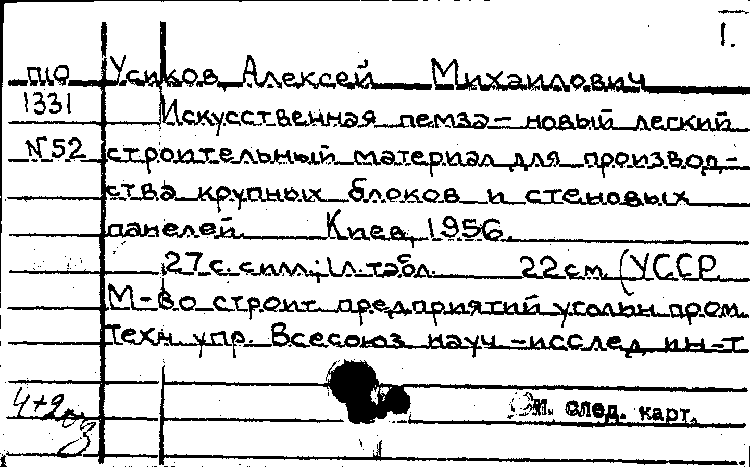 1.
П10 Усиков, Алексей Михайлович
1331 Искусственная пемза - новый легкий
N52 строительный материал для производ-
ства крупных блоков и стеновых
панелей. Киев, 1956.
27 с. с илл.; 1 л. табл. 22 см. (УССР.
М-во строит. предприятий угольн. пром.
Техн. упр. Всесоюз. науч.-исслед. ин-т
См. след. карт.